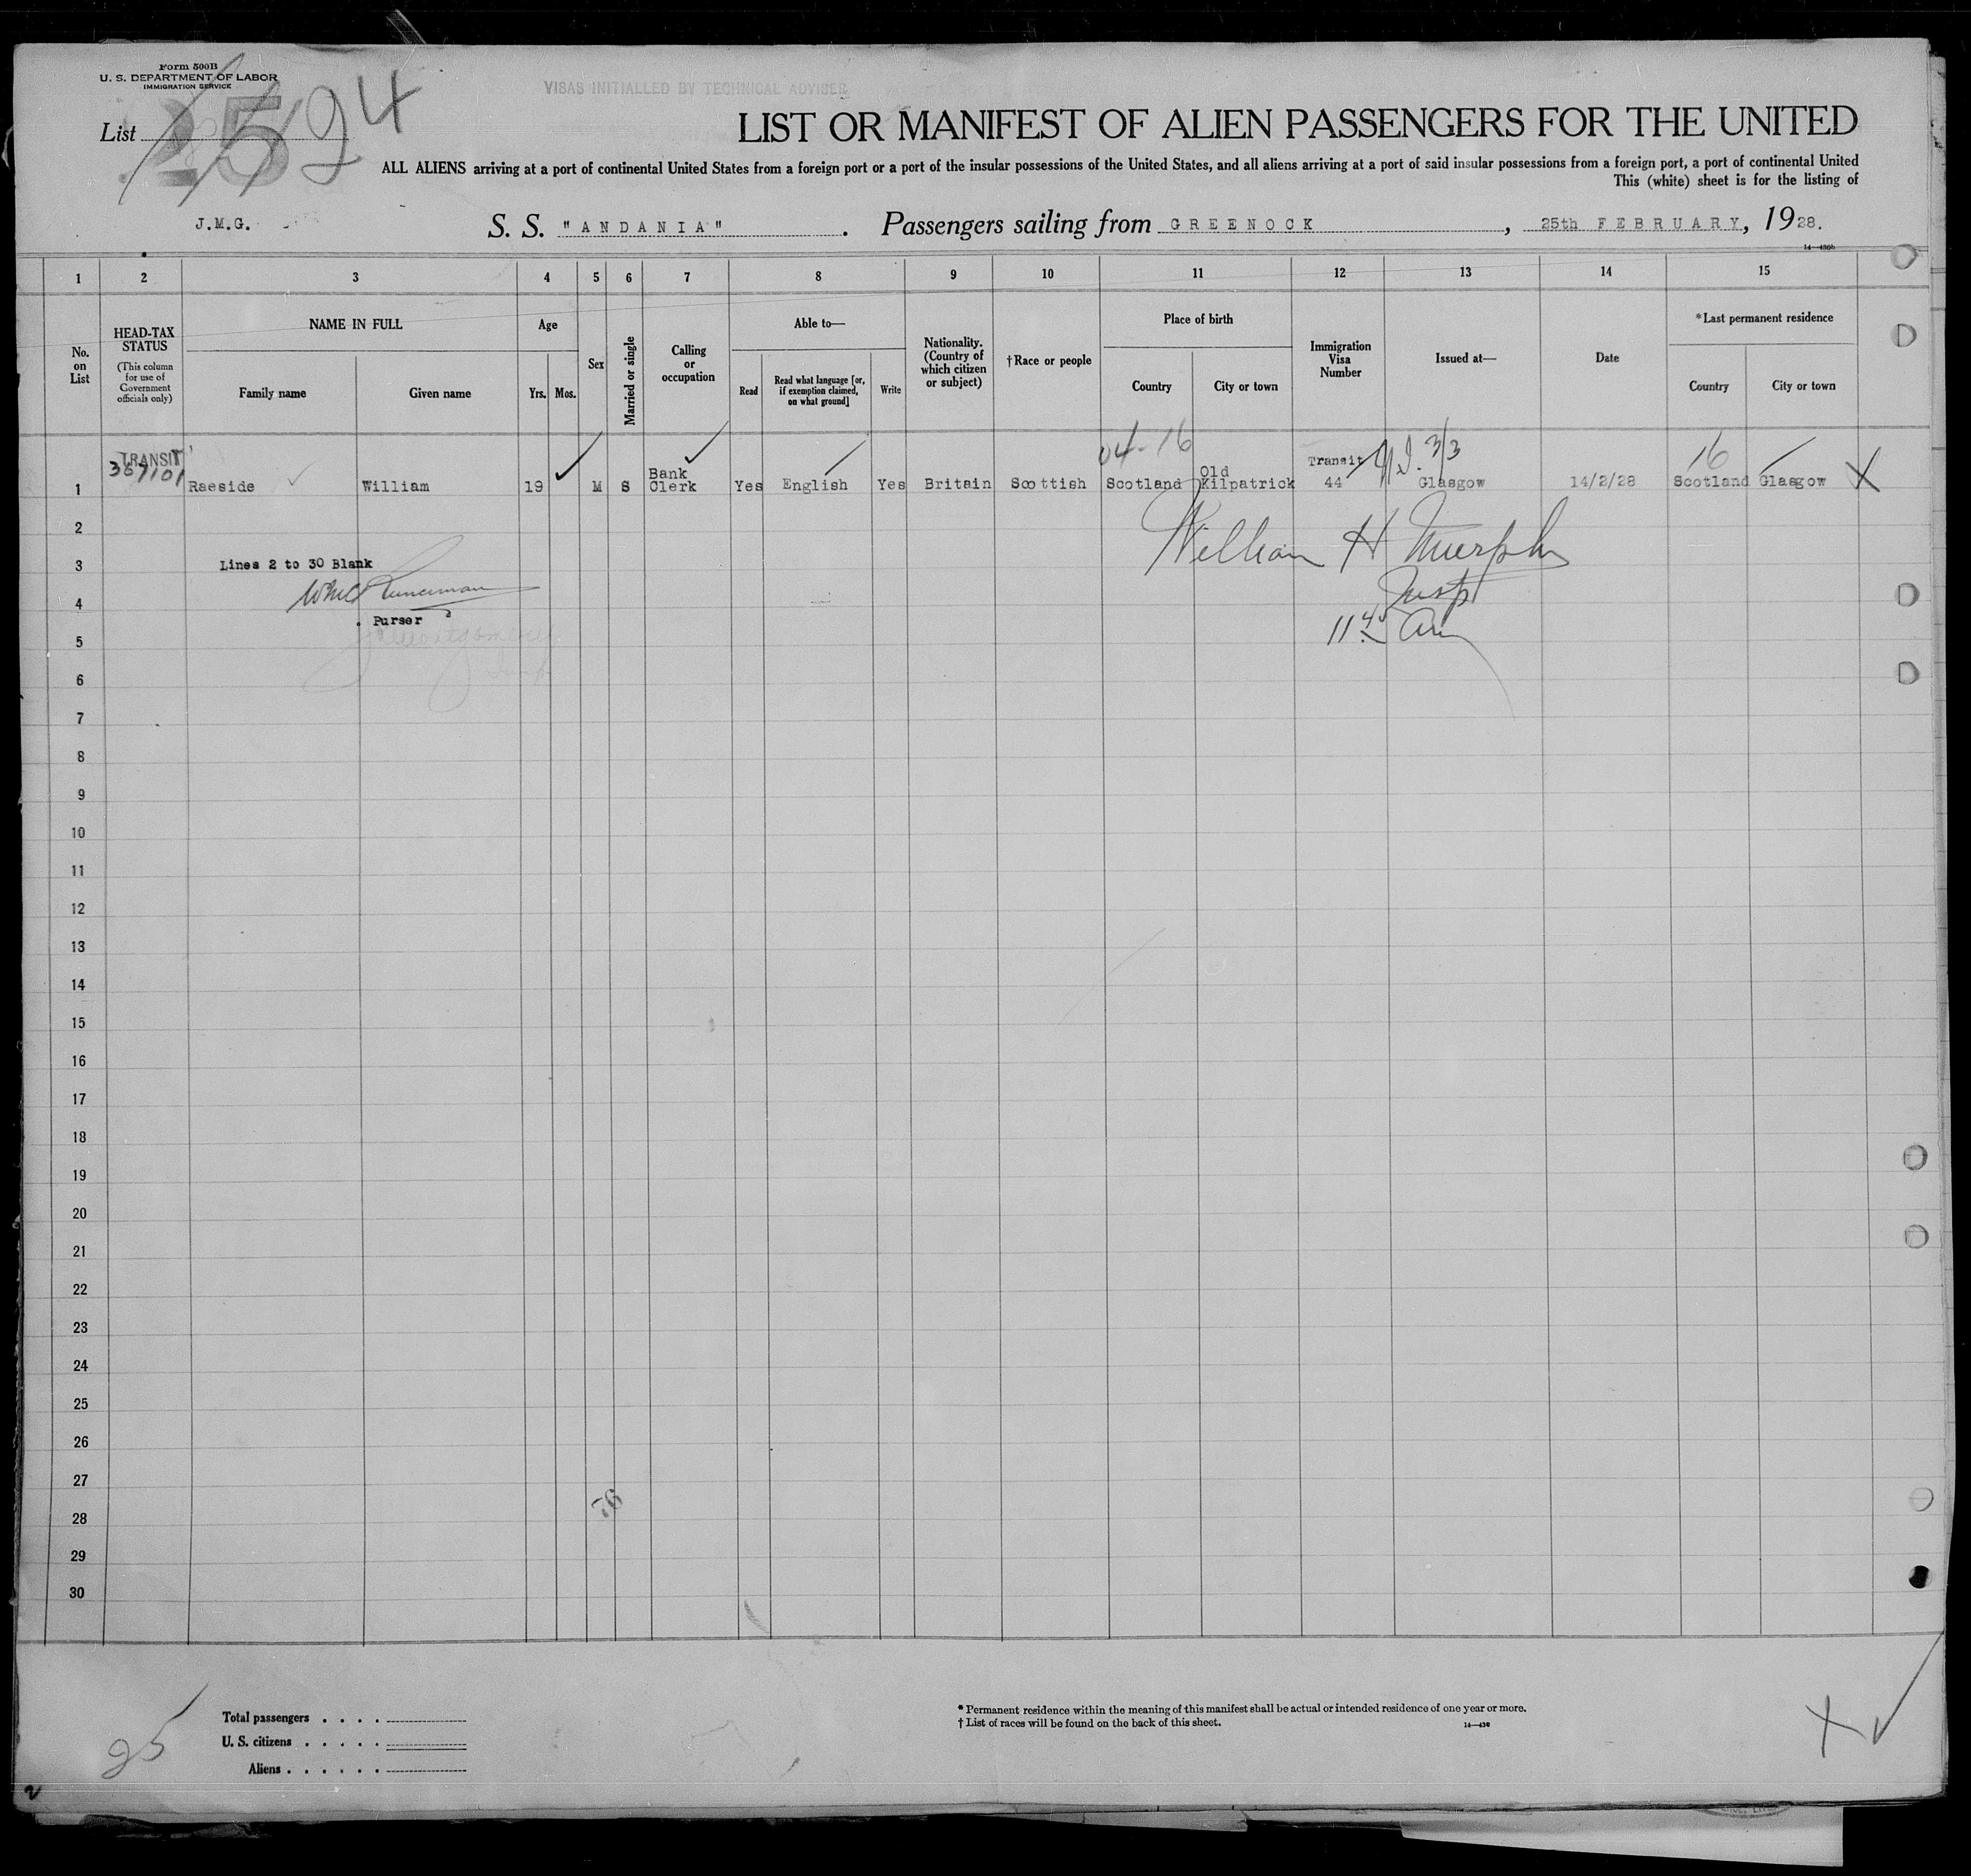 Form 500B
U. S. DEPARTMENT OF LABOR
IMMIGRATION SERVICE
VISAS INITIALLED BY TECHNICAL ADVISER
List 25 94
LIST OR MANIFEST OF ALIEN PASSENGERS FOR THE UNITED
ALL ALIENS arriving at a port of continental United States from a foreign port or a port of the insular possessions of the United States, and all aliens arriving at a port of said insular possessions from a foreign port, a port of continental United
This (white) sheet is for the listing of
J.M.G.
S. S. "ANDANIA". Passengers sailing from GREENOCK, 25th FEBRUARY, 1928.
14—430b
1 2 3 4 5 6 7 8 9 10 11 12 13 14 15
No. on List
HEAD-TAX STATUS
(This column for use of Government officials only)
NAME IN FULL
Family name
Given name
Age
Yrs. Mos.
Sex
Married or single
Calling or occupation
Able to—
Read
Read what language [or, if exemption claimed, on what ground]
Write
Nationality. (Country of which citizen or subject)
†Race or people
Place of birth
Country
City or town
Immigration Visa Number
Issued at—
Date
*Last permanent residence
Country
City or town
04-16 3/3 16
TRANSIT
367101
1 Raeside William 19 M S Bank Clerk Yes English Yes Britain Scottish Scotland Old Kilpatrick Transit 44 Glasgow 14/2/28 Scotland Glasgow X
2
William H Murphy
3 Lines 2 to 30 Blank
Insp
4
Purser
11 45 am
5
6
7
8
9
10
11
12
13
14
15
16
17
18
19
20
21
22
23
24
25
26
27
76
28
29
30
Total passengers . . . .
U. S. citizens . . . . .
Aliens . . . . . .
25
* Permanent residence within the meaning of this manifest shall be actual or intended residence of one year or more.
† List of races will be found on the back of this sheet.
14—430
X
2